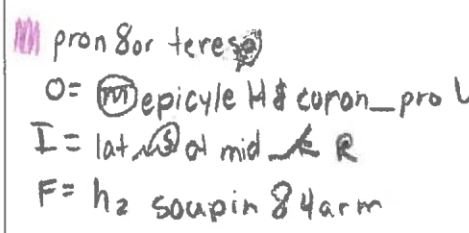 pron8or teres
O= (m) epicyle H & coron_pro U
I= lat at mid R
F= h2 soupin 84arm